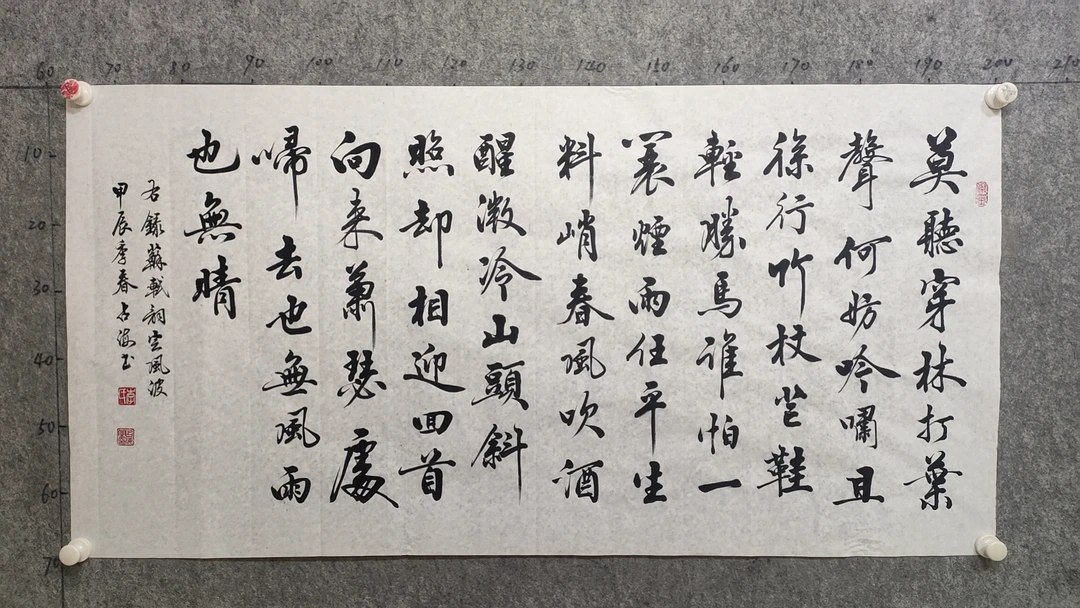 60 70 80 90 100 110 120 130 140 150 160 170 180 190 200 210
10
20
30
40
50
60
70
莫聽穿林打葉
聲何妨吟嘯且
徐行竹杖芒鞋
輕勝馬誰怕一
蓑煙雨任平生
料峭春風吹酒
醒微冷山頭斜
照却相迎回首
向来蕭瑟處
歸去也無風雨
也無晴
右錄蘇軾詞定風波
甲辰季春占海书